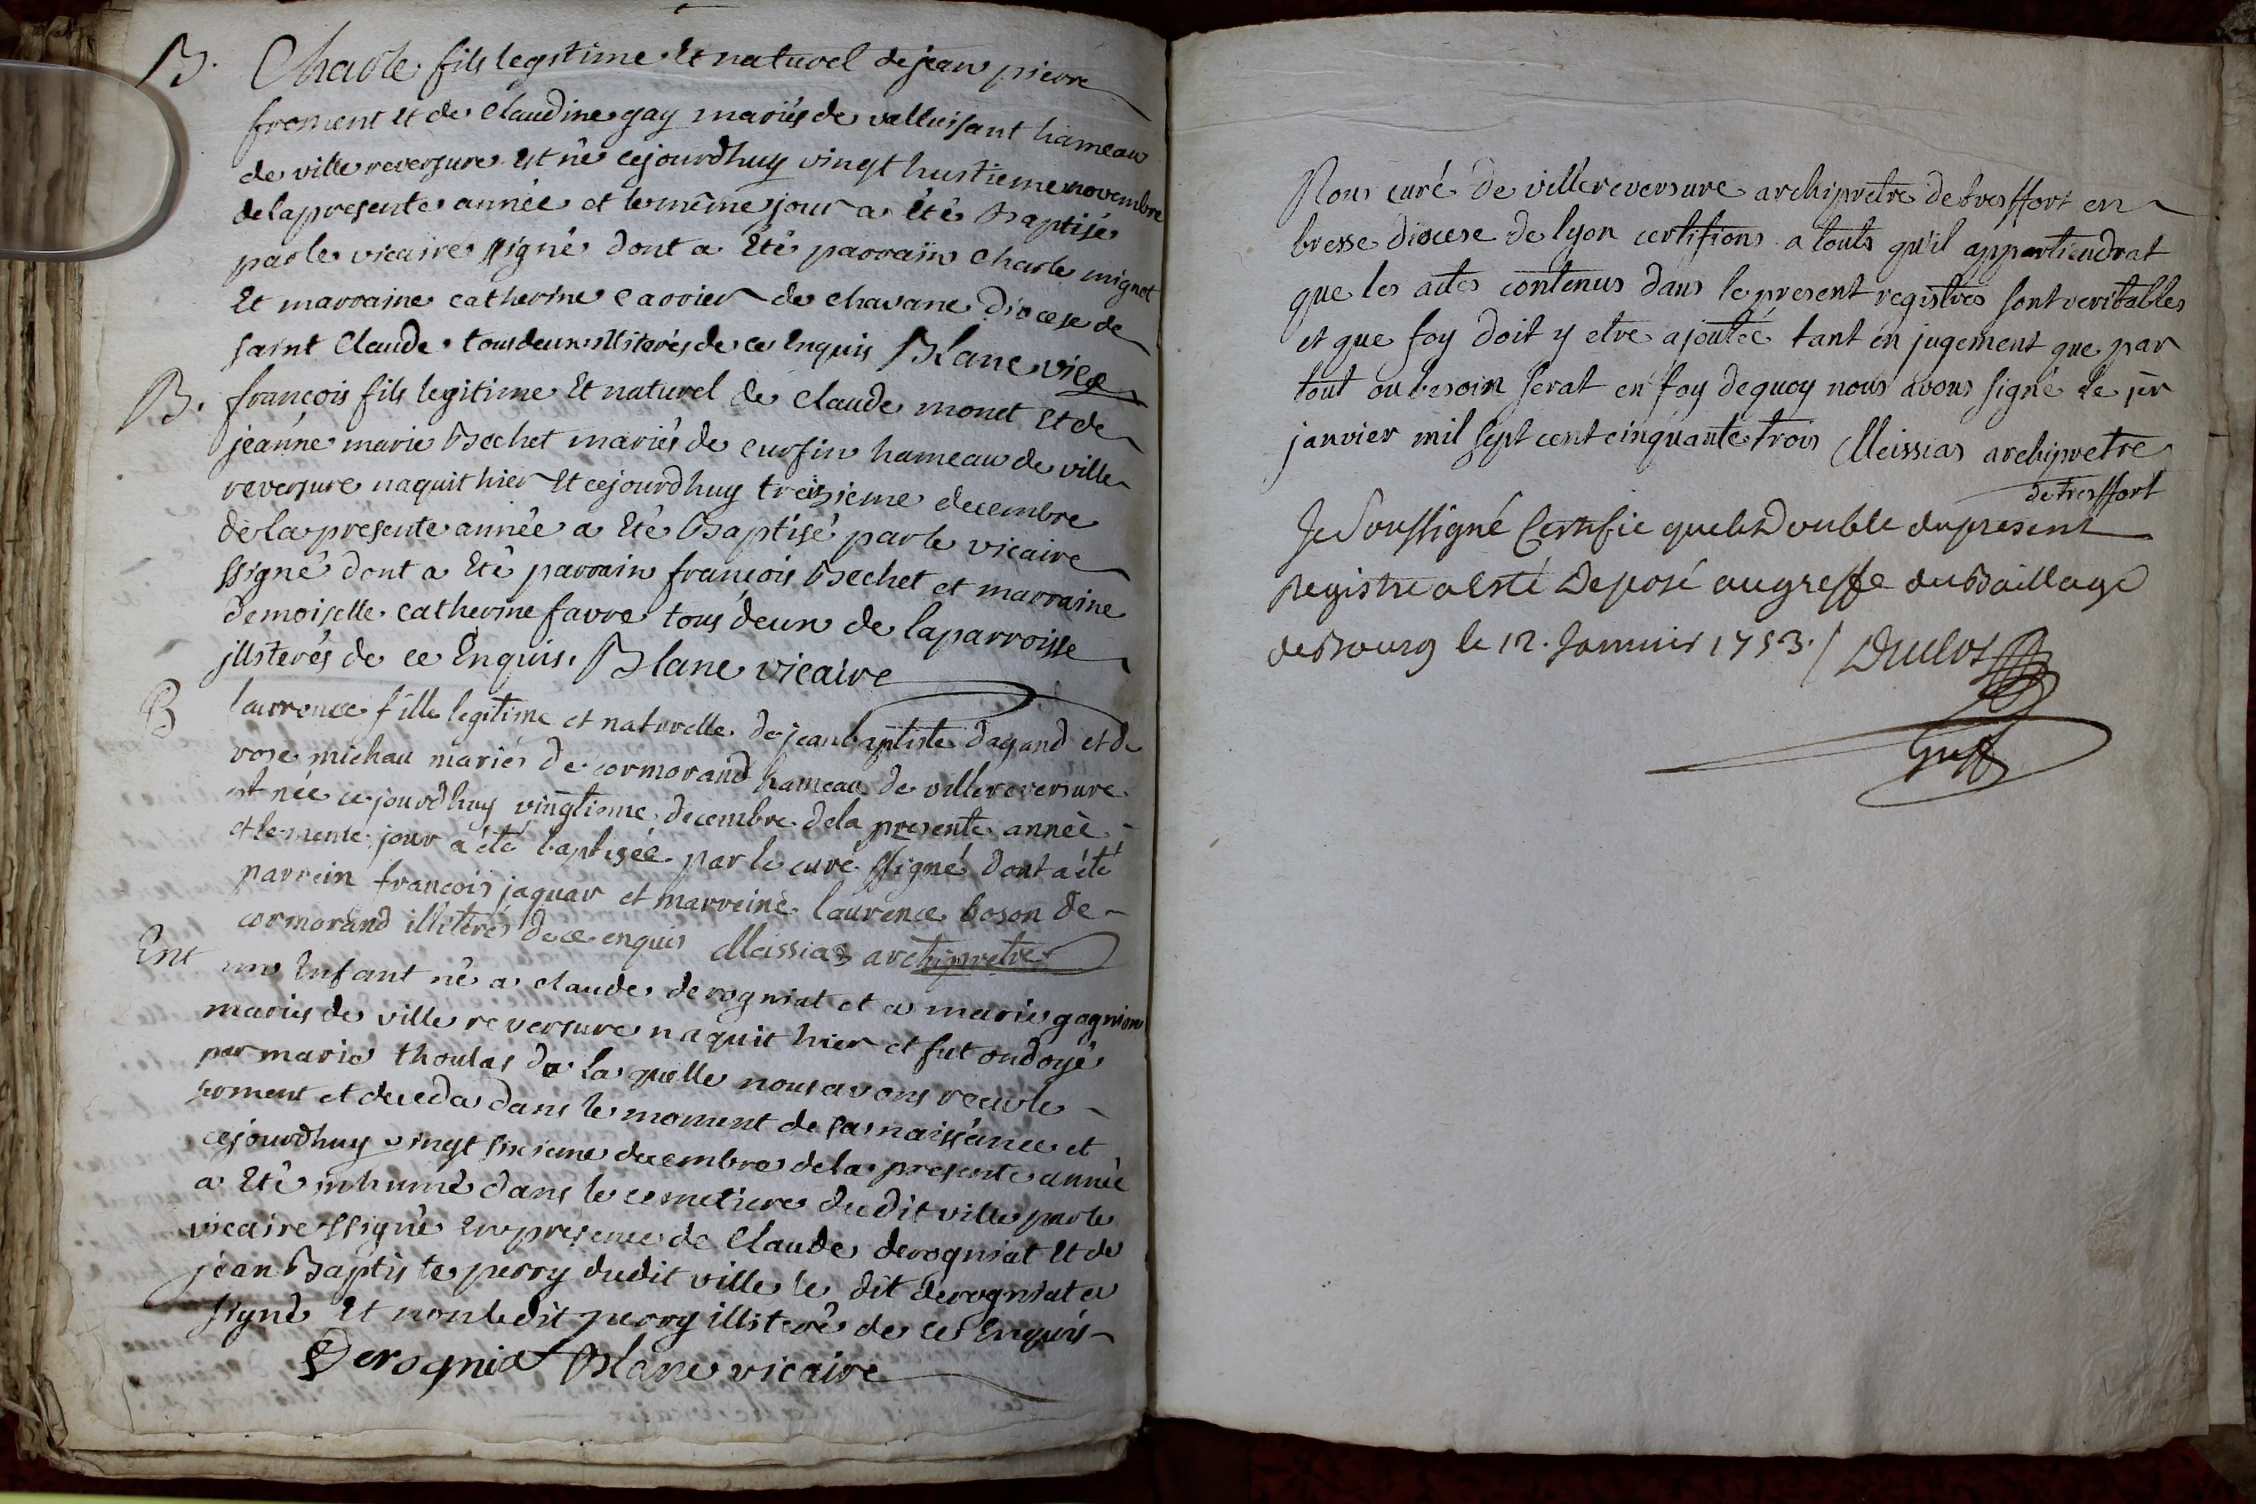 B. Charle fils legitime Et naturel de jean pierre
froment Et de Claudine gay mariés de valluisant hameau
de ville reversure Est né cejourdhuy vingt huitieme novembre
de la presente année et le même jour a été Baptisé
par le vicaire ssigné dont a Eté parrain Charle mignet
Et marraine catherine carrier de chavane Diocese de
saint Claude tous deux illiterés de ce Enquis Blanc vice
B. françois fils legitime Et naturel de Claude monet Et de
jeanne marie Bechet mariés de cursin hameau de ville
reversure naquit hier Et cejourdhuy treizieme decembre
de la presente année a Eté Baptisé par le vicaire
ssigné dont a Eté parrain françois Bechet et marraine
demoiselle catherine favre tous deux de la parroisse
illiterés de ce Enquis. Blanc vicaire
B laurence fille legitime et naturelle de jean baptiste dagand et de
rose michau mariés de cormorand hameau de villereversure
est née ce jourdhuy vingtieme decembre de la presente année
et le meme jour a été baptisée par le curé ssigné dont a été
parrein francois jaquar et marreine laurence boson de
cormorand illiterés de ce enquis Meissias archipretre
Ent un Enfant né a claude derogniat et a marie gagnion
mariés de ville reversure naquit hier et fut ondoyé
par marie thoulas de la quelle nous avons recu le
serment et deceda dans le moment de sa naissance et
cejourdhuy vingt sixieme decembre de la presente année
a Eté inhumé dans le cemetiere dudit ville par le
vicaire ssigné En presence de Claude derogniat Et de
jean Baptiste perry dudit ville le dit derogniat a
signé Et non ledit perry illiteré de ce Enquis
Derogniat Blanc vicaire
Nous curé de villereversure archipretre de tresffort en
bresse diocese de lyon certifions a touts qu'il appartiendrat
que les actes contenus dans le present registres sont veritables
et que foy doit y etre ajoutée tant en jugement que par
tout ou besoin serat en foy de quoy nous avons signé le jer
janvier mil sept cent cinquante trois Meissias archipretre
de tresffort
Je Soussigné Certifie que le Double du present
Registre a Esté Deposé au greffe du Baillage
de Bourg le 12. Janvier 1753. / Duclos
Greff